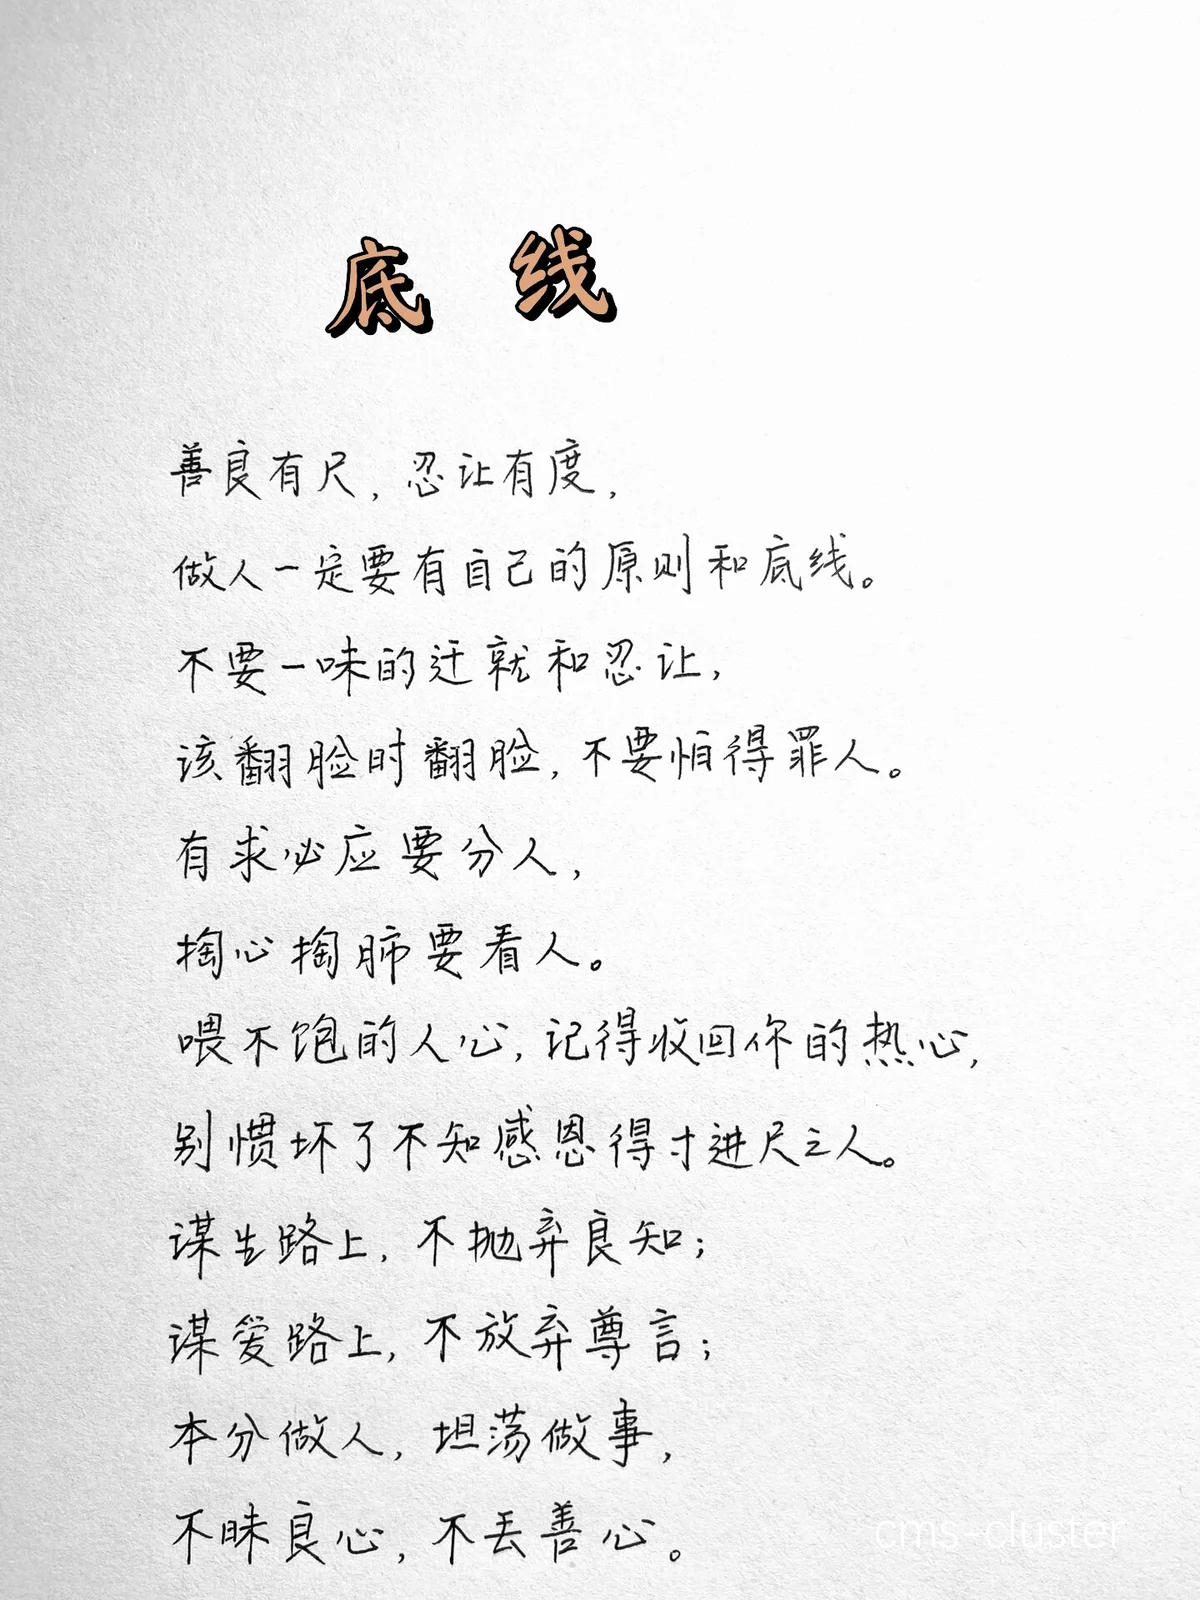 底 线
善良有尺，忍让有度，
做人一定要有自己的原则和底线。
不要一味的迁就和忍让，
该翻脸时翻脸，不要怕得罪人。
有求必应要分人，
掏心掏肺要看人。
喂不饱的人心，记得收回你的热心，
别惯坏了不知感恩得寸进尺之人。
谋生路上，不抛弃良知；
谋爱路上，不放弃尊言；
本分做人，坦荡做事，
不昧良心，不丢善心。
cms-cluster